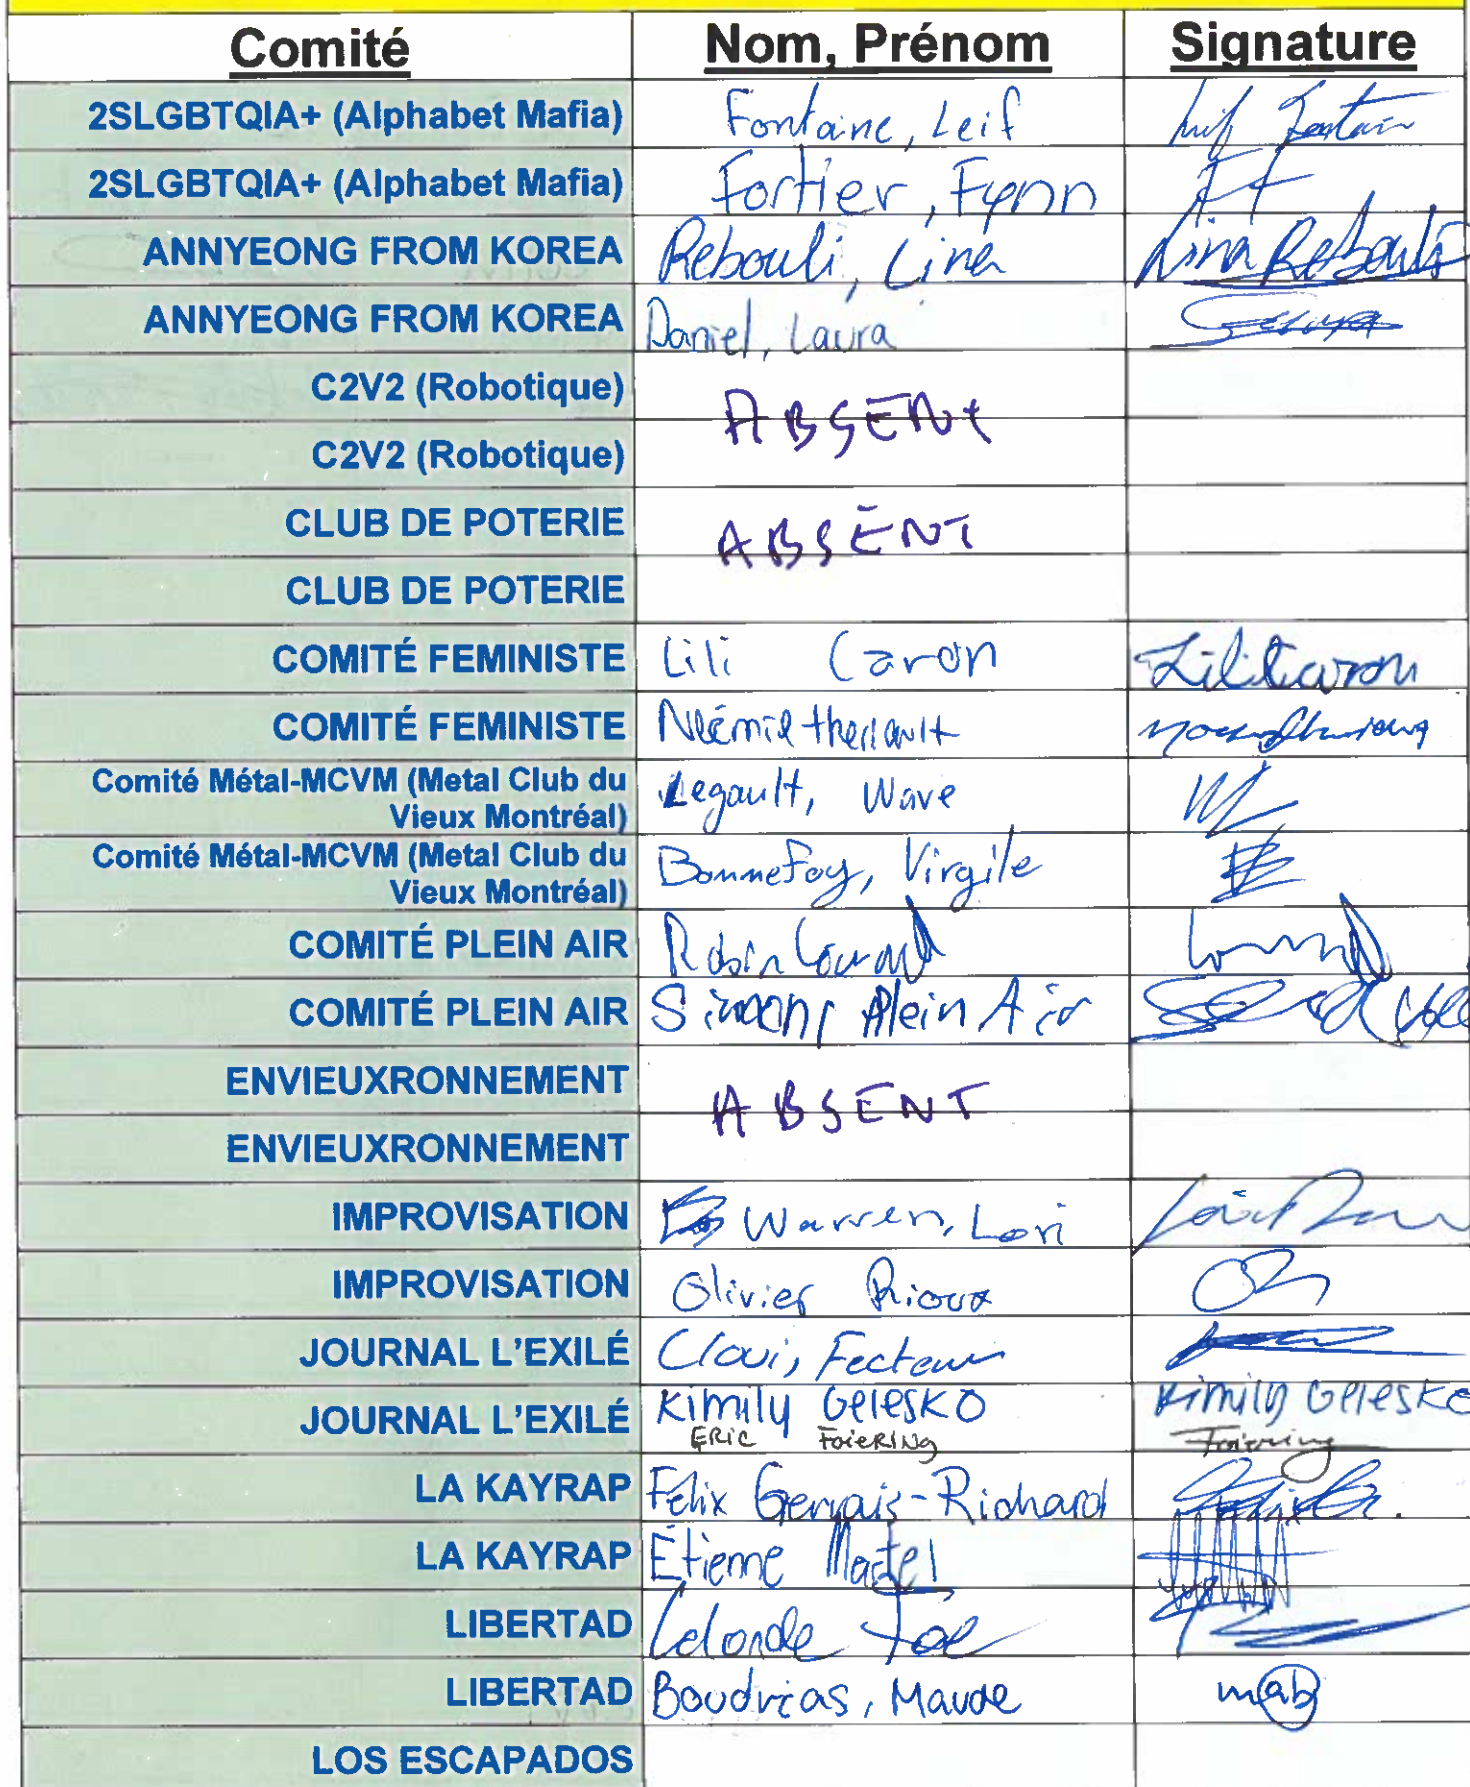 Comité Nom, Prénom Signature
2SLGBTQIA+ (Alphabet Mafia) Fontaine, Leif
2SLGBTQIA+ (Alphabet Mafia) Fortier, Fynn FF
ANNYEONG FROM KOREA Rebouli, Lina Lina Rebouli
ANNYEONG FROM KOREA Daniel, Laura
C2V2 (Robotique) ABSENt
C2V2 (Robotique)
CLUB DE POTERIE ABSENT
CLUB DE POTERIE
COMITÉ FEMINISTE Lili Caron Lili Caron
COMITÉ FEMINISTE Noémie theriault
Comité Métal-MCVM (Metal Club du
Vieux Montréal) Legault, Wave
Comité Métal-MCVM (Metal Club du
Vieux Montréal) Bonnefoy, Virgile
COMITÉ PLEIN AIR Robin
COMITÉ PLEIN AIR Simon, Plein Air
ENVIEUXRONNEMENT ABSENT
ENVIEUXRONNEMENT
IMPROVISATION Warren, Lori
IMPROVISATION Olivier Rioux
JOURNAL L'EXILÉ Clovi, Fecteau
JOURNAL L'EXILÉ Kimily Gelesko Kimily Gelesko
ERIC FoieRiNg Foiering
LA KAYRAP Félix Gervais-Richard
LA KAYRAP Étienne Martel
LIBERTAD Lalonde
LIBERTAD Boudrias, Maude mab
LOS ESCAPADOS